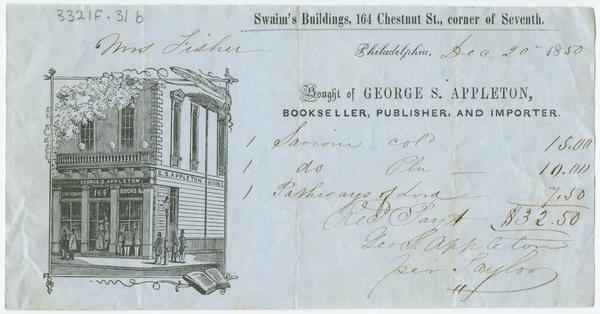 3321F.31b
Swaim's Buildings, 164 Chestnut St., corner of Seventh.
Mrs Fisher
Philadelphia, Dec 20 1850
Bought of GEORGE S. APPLETON,
BOOKSELLER, PUBLISHER, AND IMPORTER.
1 Saviour cold 15.00
1 do Pln 10.00
1 Pathways of Lord 7.50
Recd Payt $32.50
Geo S Appleton
per Taylor
GEORGE S. APPLETON
G. S. APPLETON BOOKS
STATIONERY 164 BOOKS &